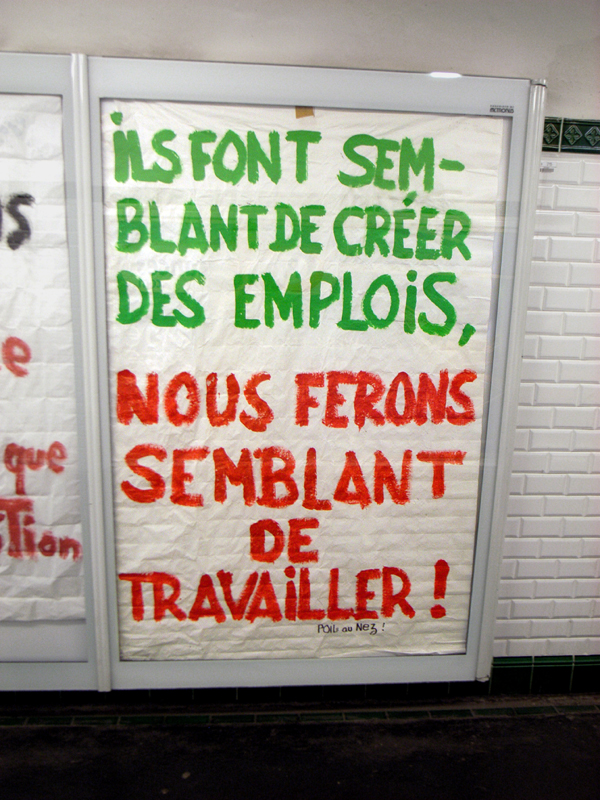 iLS FONT SEM-
BLANT DE CRÉER
DES EMPLOiS,
NOUS FERONS
SEMBLANT
DE
TRAVAiLLER !
POIL au NEZ !
METROBUS
que